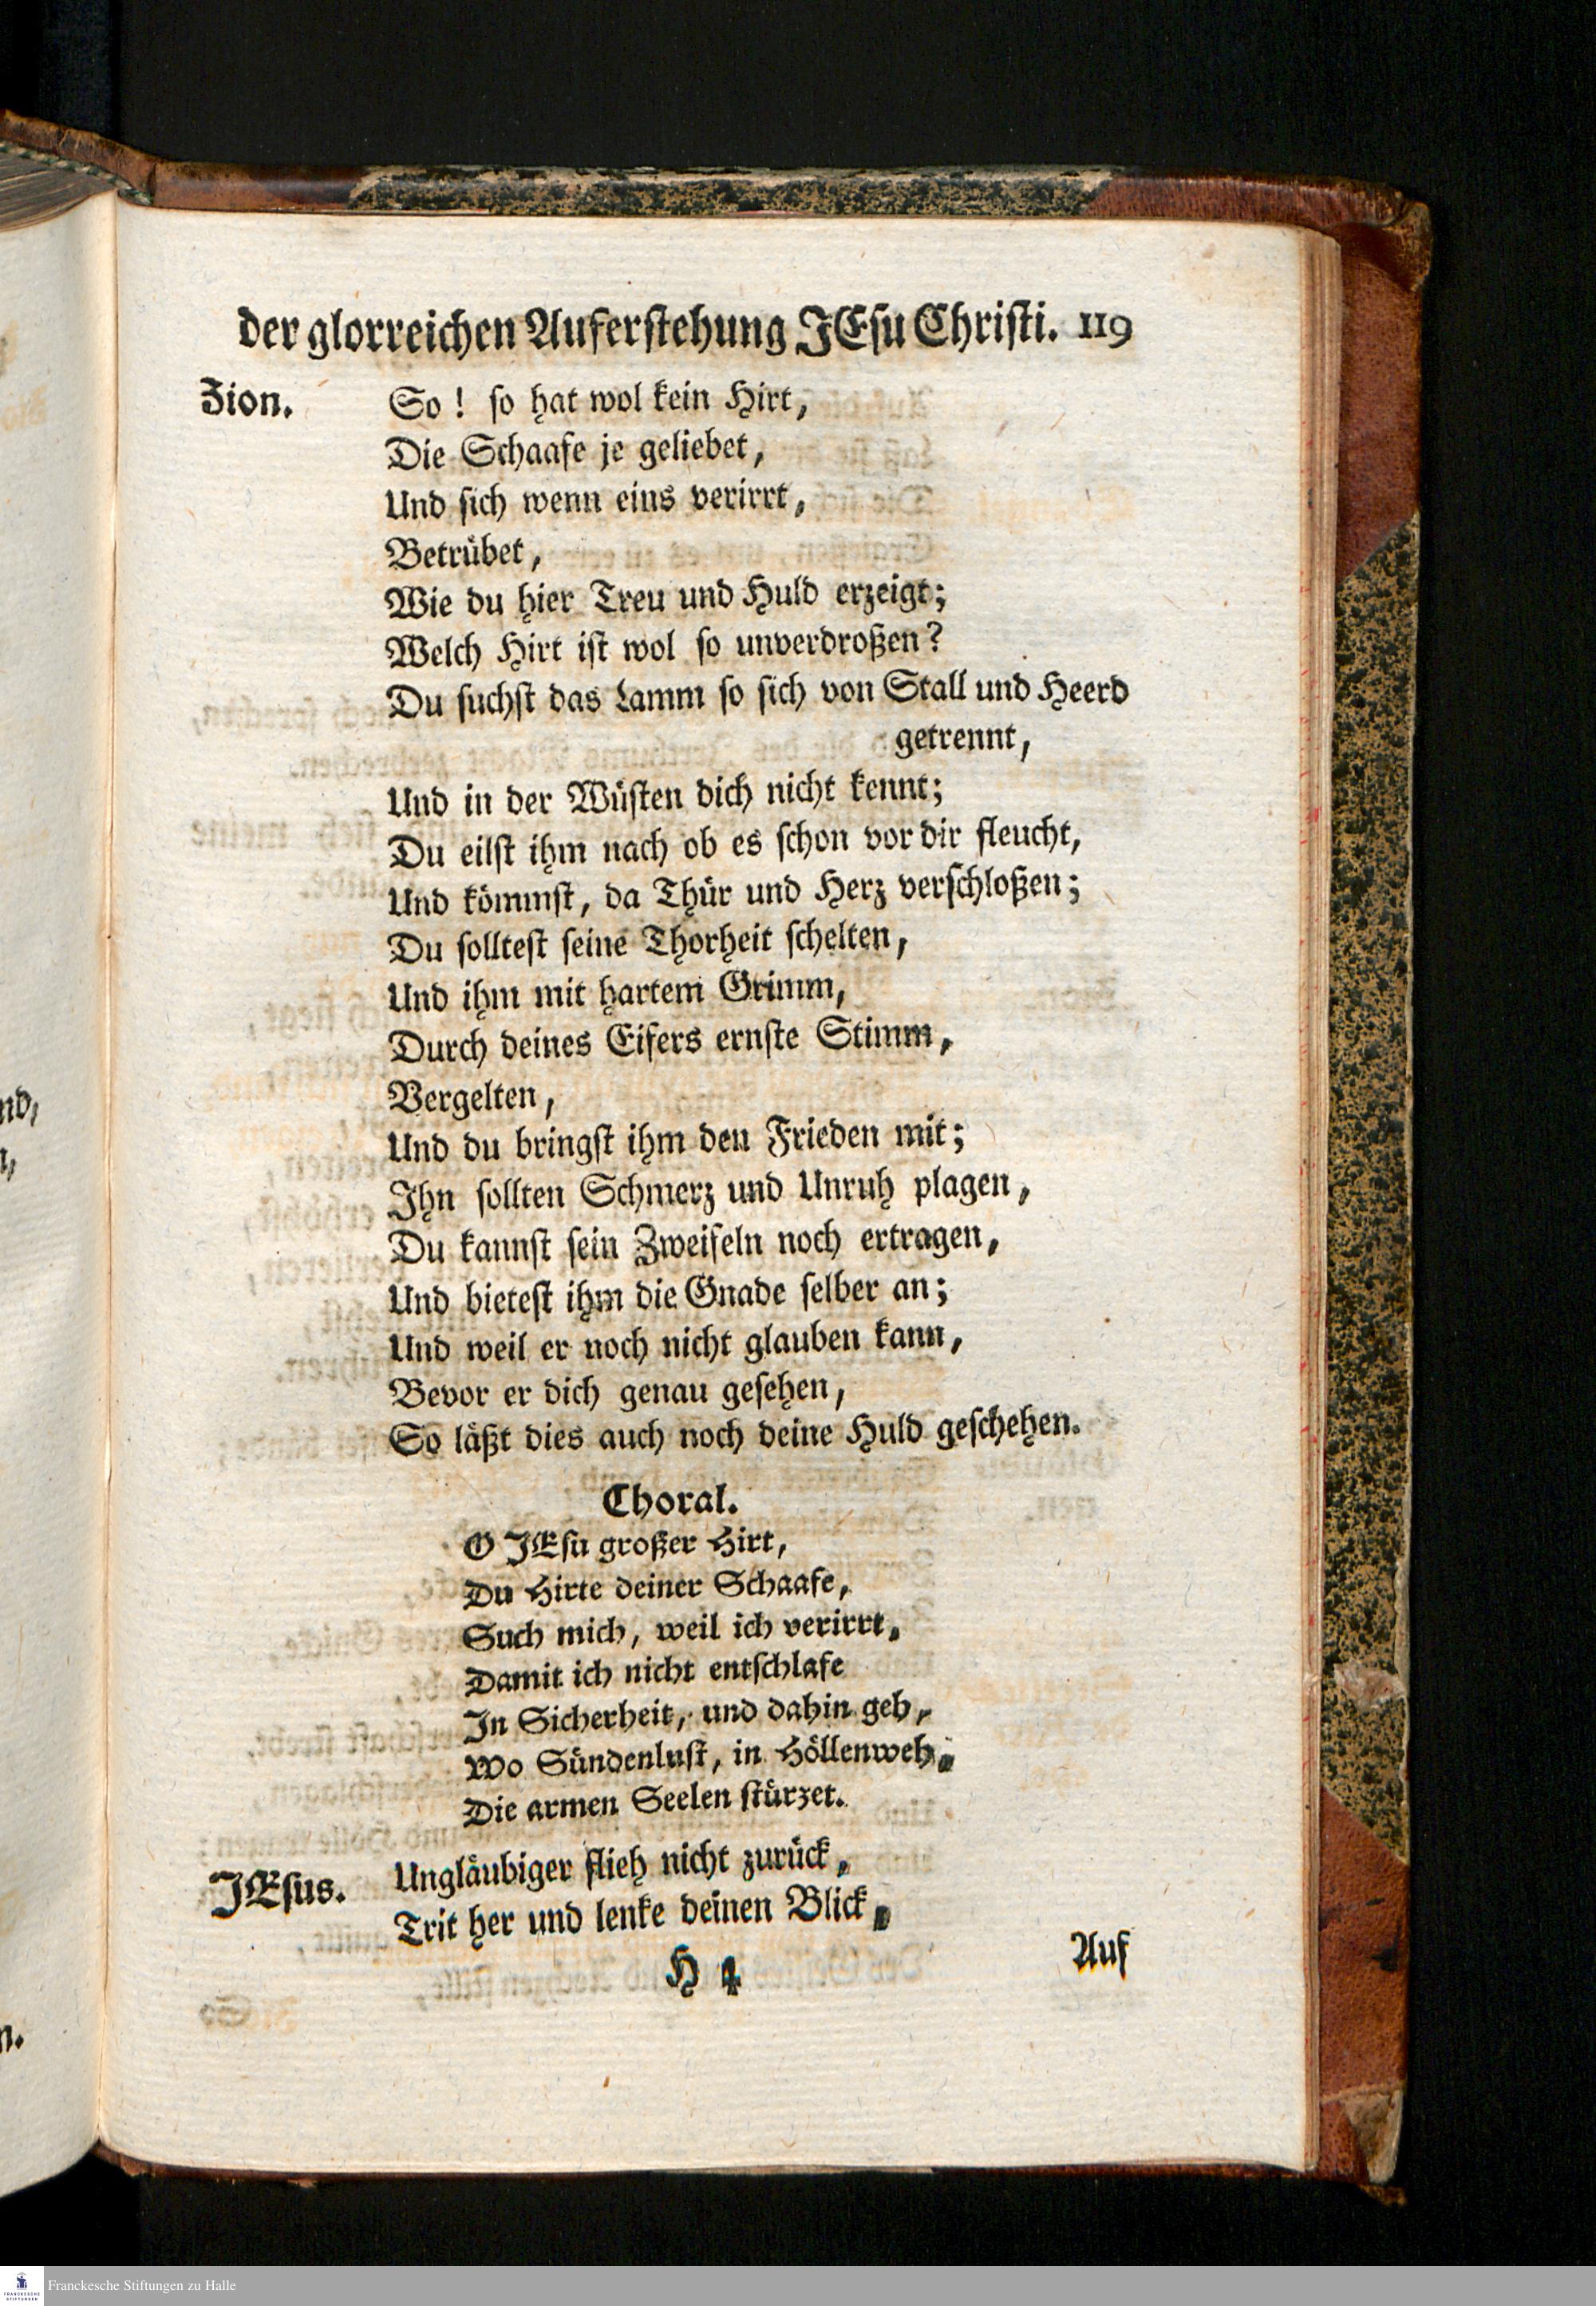 der glorreichen Auferstehung JEsu Christi. 119
Zion. So! so hat wol kein Hirt,
Die Schaafe je geliebet,
Und sich wenn eins verirrt,
Betrübet,
Wie du hier Treu und Huld erzeigt;
Welch Hirt ist wol so unverdroßen?
Du suchst das Lamm so sich von Stall und Heerd
getrennt,
Und in der Wüsten dich nicht kennt;
Du eilst ihm nach ob es schon vor dir fleucht,
Und kömmst, da Thür und Herz verschloßen;
Du solltest seine Thorheit schelten,
Und ihm mit hartem Grimm,
Durch deines Eifers ernste Stimm,
Vergelten,
Und du bringst ihm den Frieden mit;
Ihn sollten Schmerz und Unruh plagen,
Du kannst sein Zweifeln noch ertragen,
Und bietest ihm die Gnade selber an;
Und weil er noch nicht glauben kann,
Bevor er dich genau gesehen,
So läßt dies auch noch deine Huld geschehen.
Choral.
O JEsu großer Hirt,
Du Hirte deiner Schaafe,
Such mich, weil ich verirrt,
Damit ich nicht entschlafe
In Sicherheit, und dahin geh,
Wo Sündenlust, in Höllenweh,
Die armen Seelen stürzet.
JEsus. Ungläubiger flieh nicht zurück,
Trit her und lenke deinen Blick,
H 4
Auf
nd,
n.
Franckesche Stiftungen zu Halle
FRANCKESCHE
STIFTUNGEN